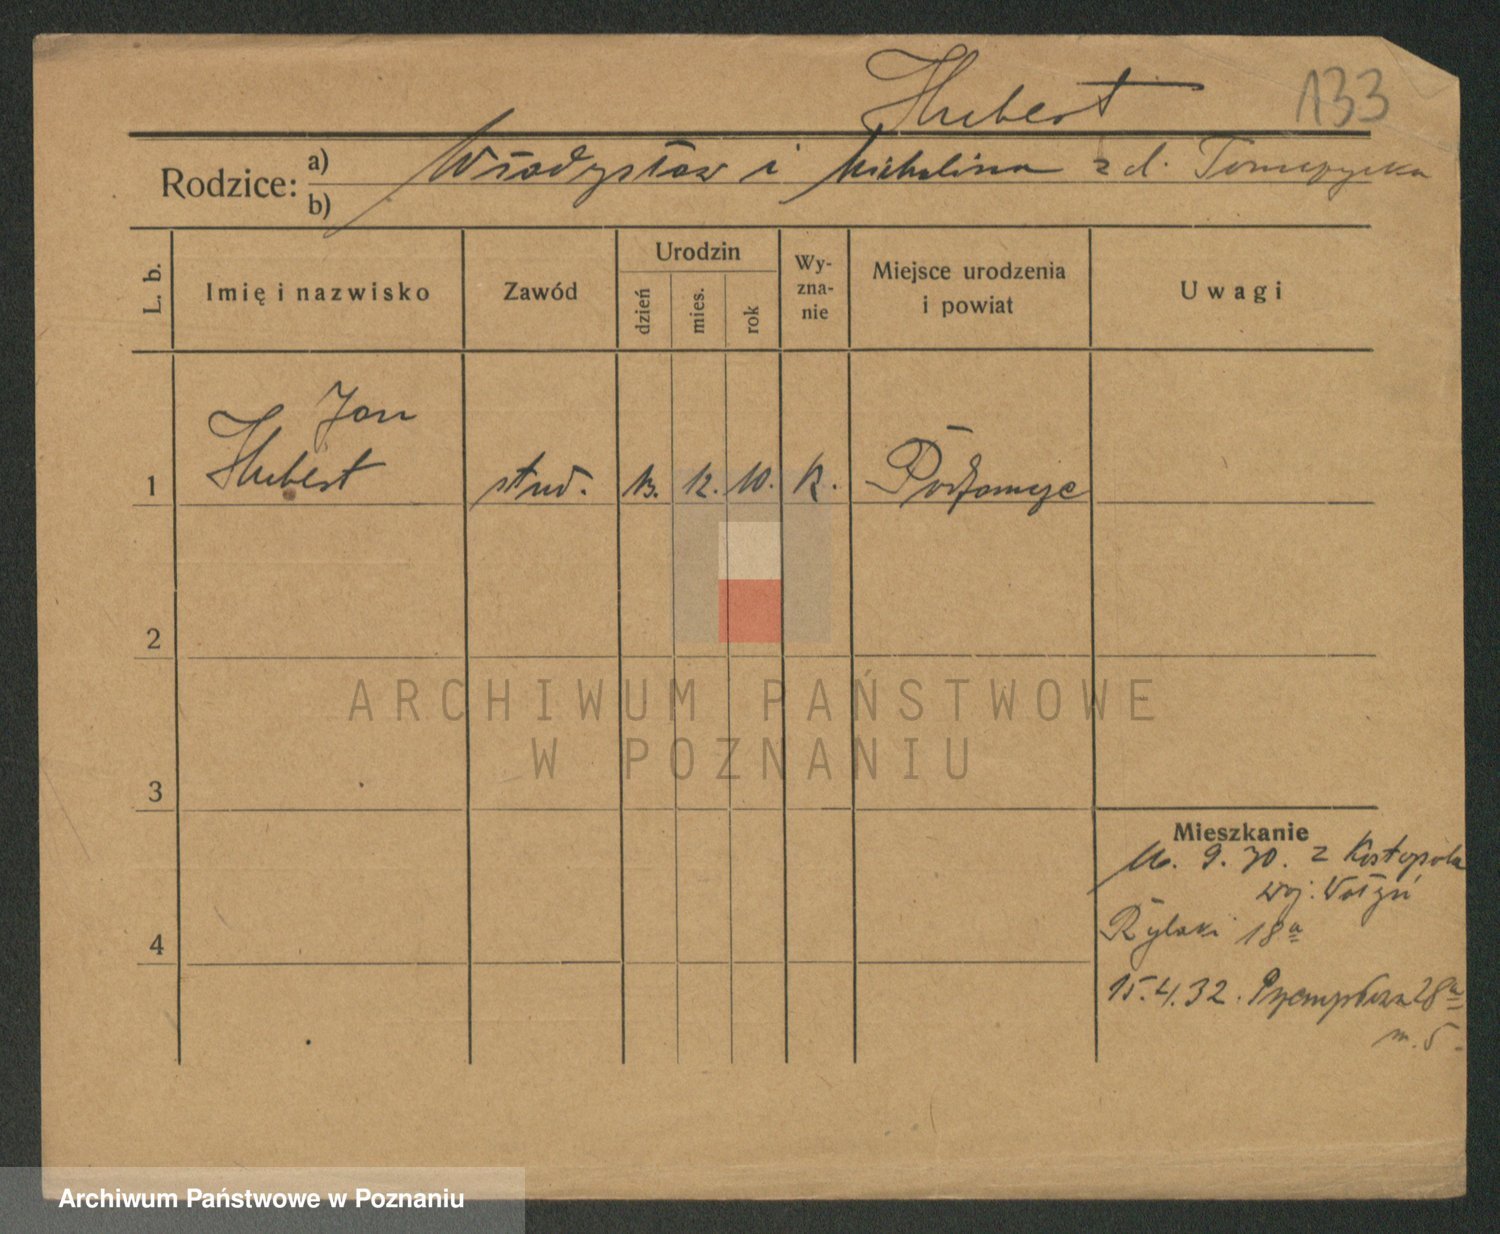 Hubert 133
Rodzice: a) Władysław i Michalina z d.
b)
L. b. Imię i nazwisko Zawód Urodzin dzień mies. rok Wy-zna-nie Miejsce urodzenia i powiat Uwagi
Jan
1 Hubert stud. 13. 12. 10. k. Podzamcze
2
ARCHIWUM PAŃSTWOWE
W POZNANIU
3
Mieszkanie
16. 9. 30. z Kostopola
woj. Wołyń
4 Rybaki 18a
15.4.32. 28a
m. 5.
Archiwum Państwowe w Poznaniu